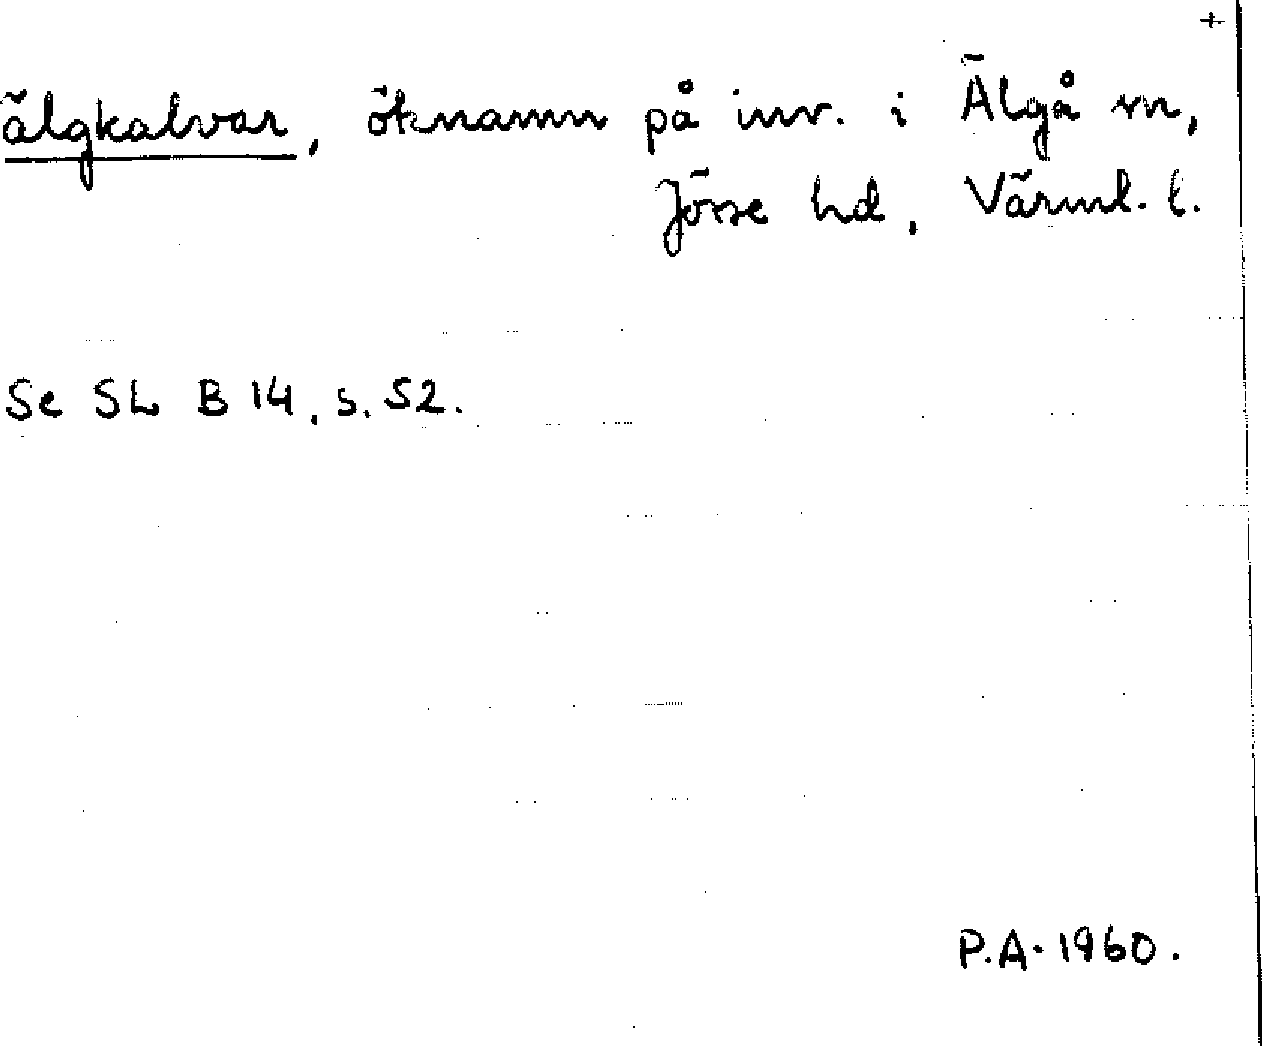 +
älgkalvar, öknamn på inv. i Älgå sn,
Jösse hd, Värml. l.
Se SL B 14, s. 52.
P.A. 1960.